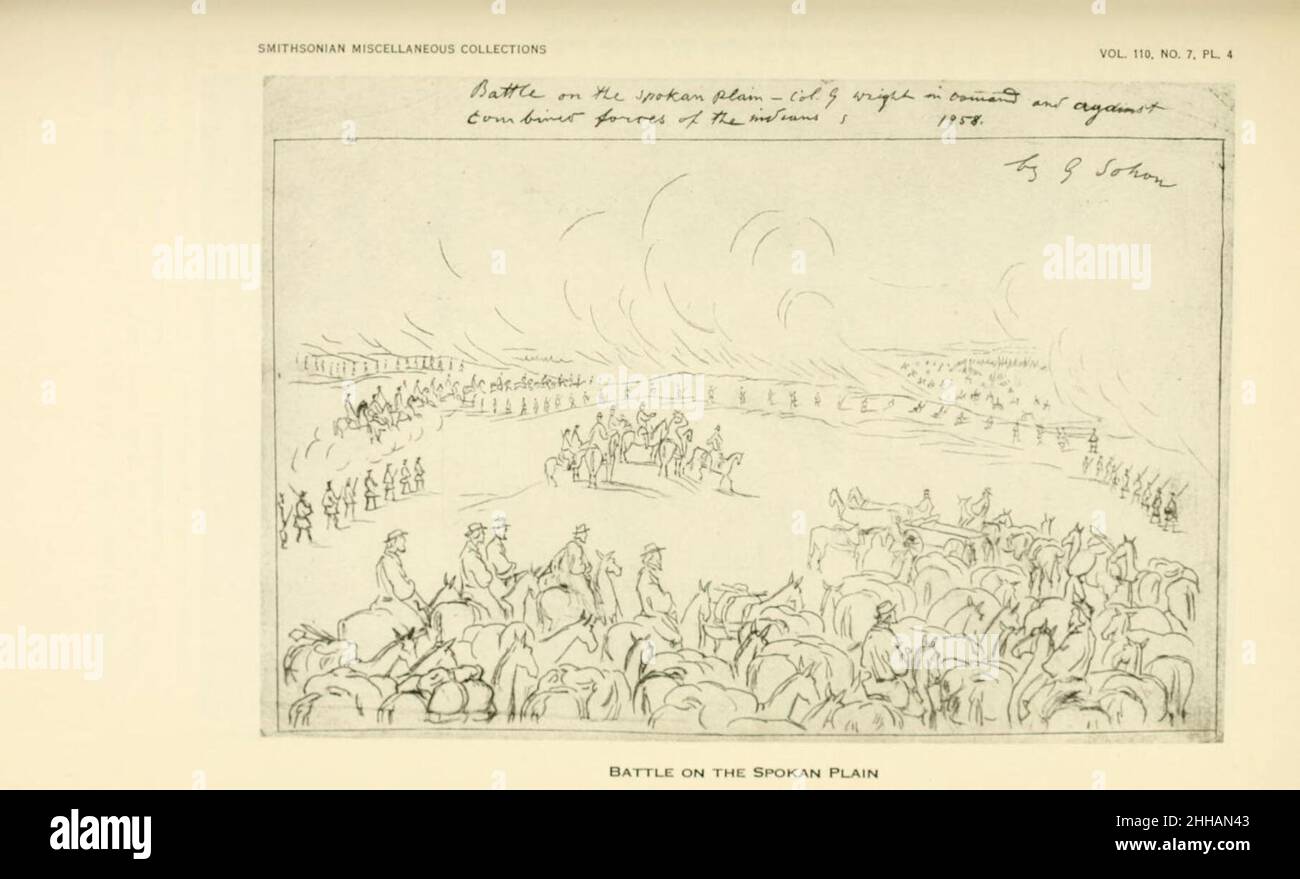 SMITHSONIAN MISCELLANEOUS COLLECTIONS
VOL. 110, NO. 7, PL. 4
Battle on the spokan plain – Col. G wright in comand and against
combined forces of the indians 1958.
by G Sohon
BATTLE ON THE SPOKAN PLAIN
alamy
Image ID: 2HHAN43
www.alamy.com